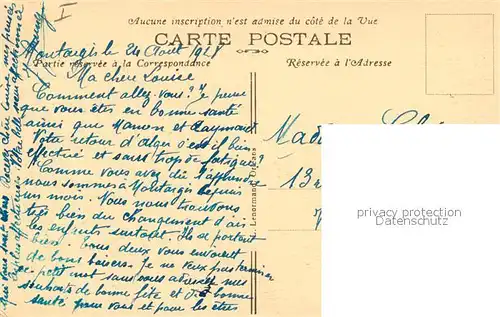 Aucune inscription n'est admise du côté de la Vue
CARTE POSTALE
Partie réservée à la Correspondance
Réservée à l'Adresse
I
Montargis le 24 Août 1928
Ma chère Louise
Comment allez-vous? Je pense
que vous êtes en bonne santé
ainsi que Manon et Raymond
Votre retour d'Alger s'est il bien
effectué et sans trop de fatigue?
Comme vous avez dû l'apprendre
nous sommes à Montargis depuis
un mois. Nous nous trouvons
très bien du changement d'air
les enfants surtout. Ils se portent
bien. Tous deux vous envoient
de bons baisers. Je ne veux pas terminer
ce petit mot sans vous adresser mes
souhaits de bonne fête et de bonne
santé pour vous et pour les êtres
qui vous sont chers. Recevez chère Louise mes pensées
les plus affectueuses. Votre belle sœur
L. Lenormand, Orléans
Mad
13
privacy protection
Datenschutz